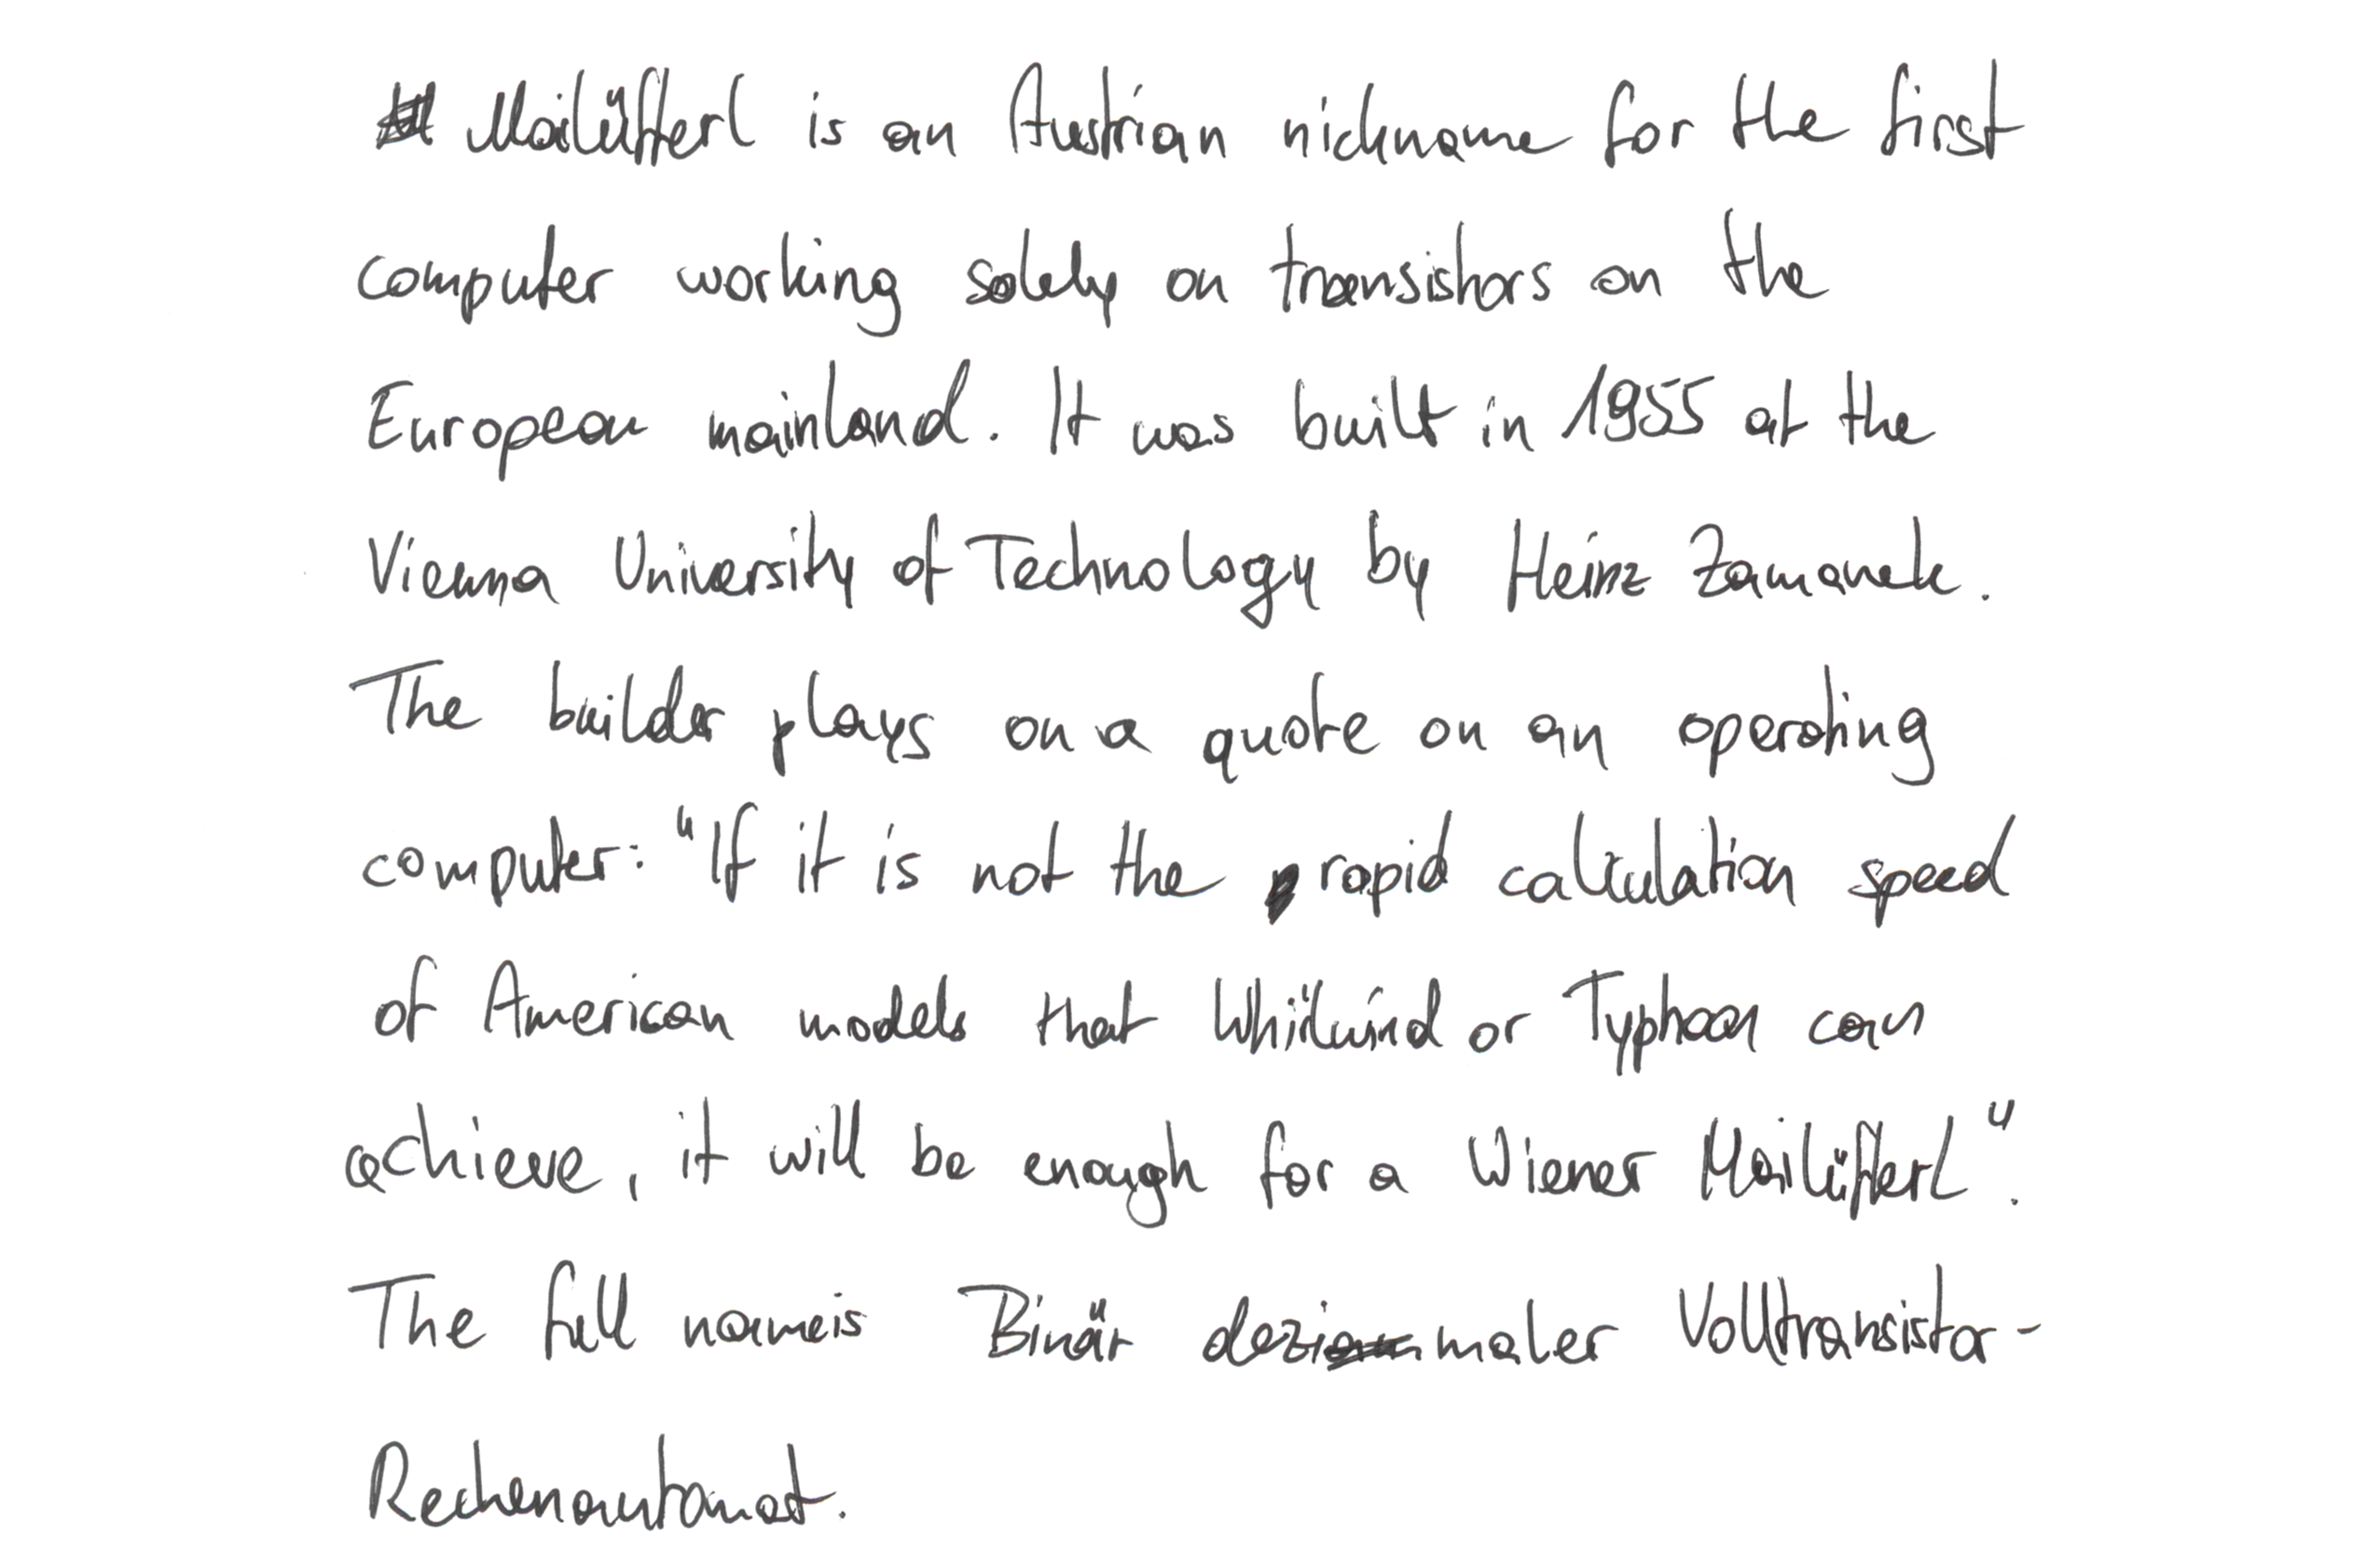 Mailüfterl is an Austrian nickname for the first
computer working solely on transistors on the
European mainland. It was built in 1955 at the
Vienna University of Technology by Heinz Zamanek.
The builder plays on a quote on an operating
computer: "If it is not the rapid calculation speed
of American models that Whirlwind or Typhoon can
achieve, it will be enough for a Wiener Mailüfterl".
The full name is Binär dezimaler Volltransistor-
Rechenautomat.